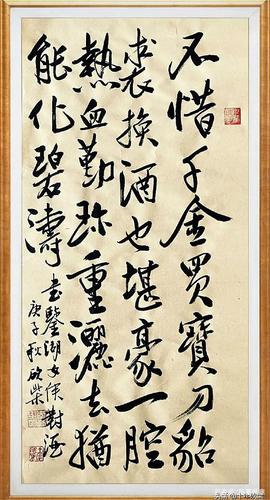 不惜千金買寶刀貂
裘換酒也堪豪一腔
熱血勤珍重灑去猶
能化碧濤
書鑒湖女俠對酒
庚子秋